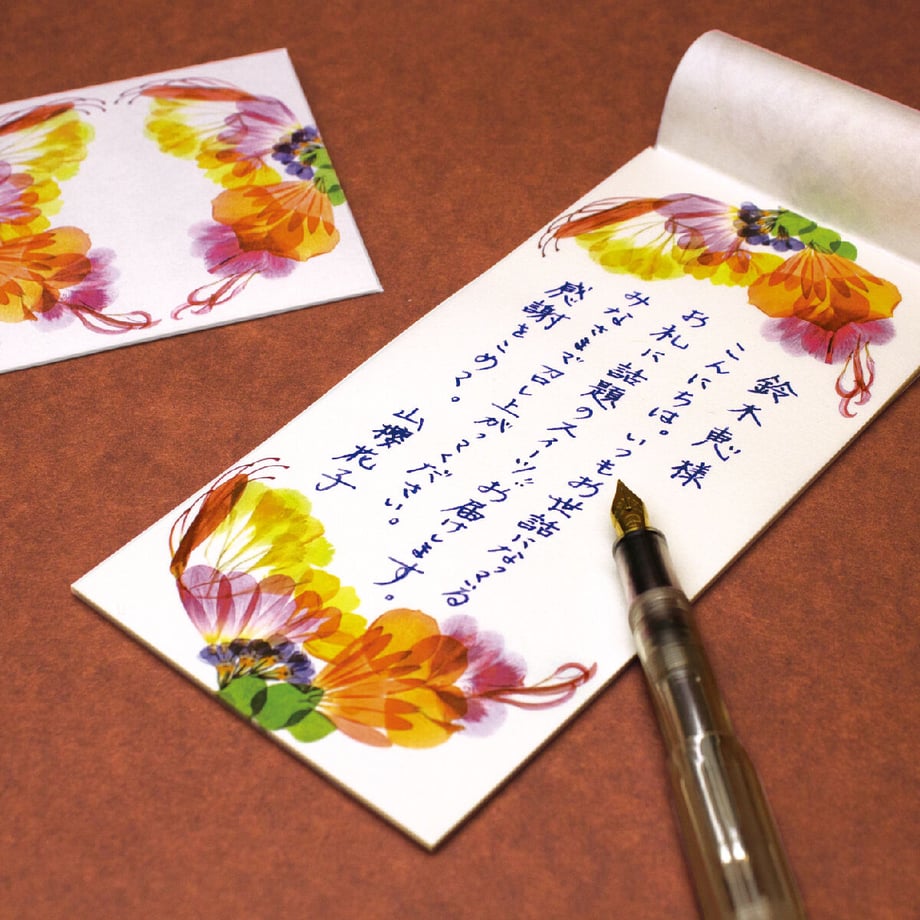 鈴木恵様
こんにちは。いつもお世話になってる
お礼に話題のスイーツお届けします。
みなさまで召し上がってください。
感謝をこめて。
山櫻花子